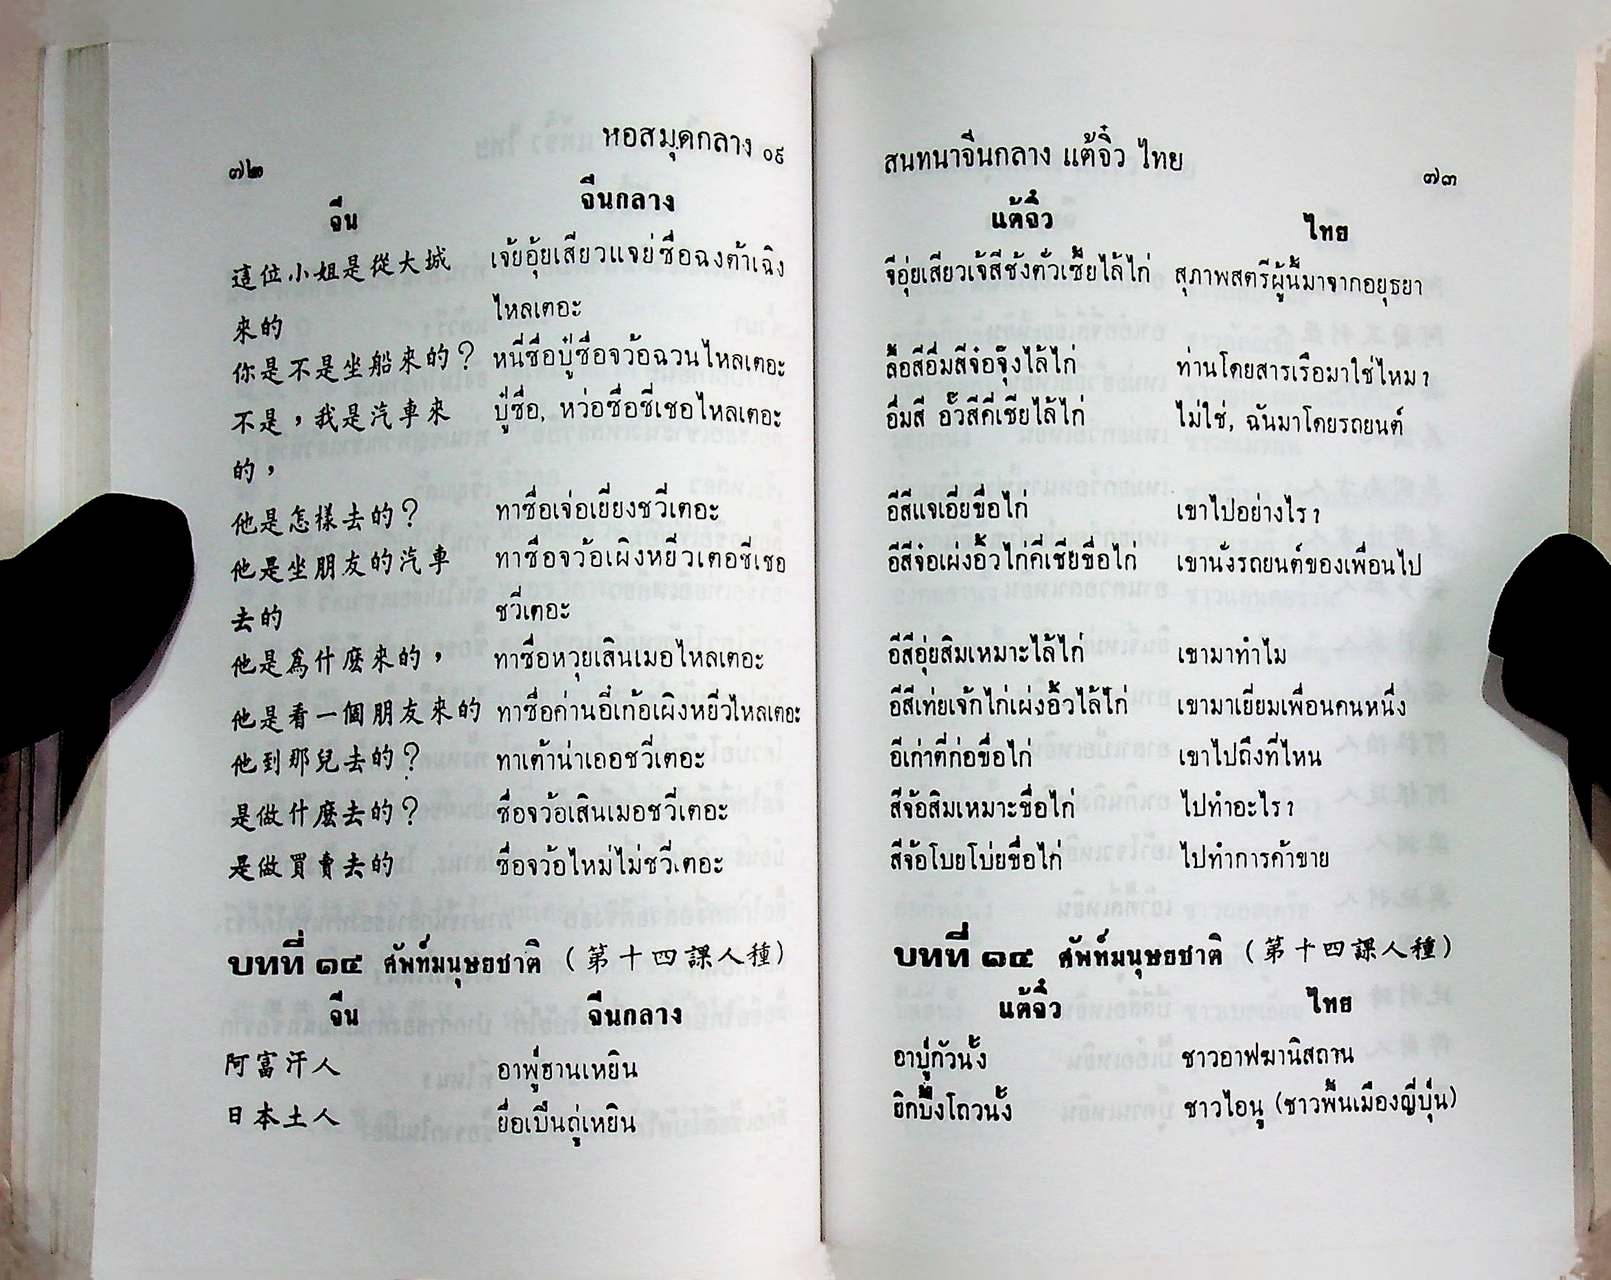 หอสมุดกลาง ๐๕
๗๒
จีน จีนกลาง
這位小姐是從大城 เจ้ยอุ้ยเสียวแจย่ซื่อฉงต้าเฉิง
ไหลเตอะ
來的
你是不是坐船來的? หนี่ซื่อปู๋ซื่อจว้อฉวนไหลเตอะ
不是,我是汽車來 ปู๋ซื่อ, หว่อซื่อชี่เชอไหลเตอะ
的,
他是怎樣去的? ทาซื่อเจ่อเยี่ยงชวี่เตอะ
他是坐朋友的汽車 ทาซื่อจว้อเผิงหยิ่วเตอชี่เชอ
去的 ชวี่เตอะ
他是爲什麼來的, ทาซื่อหวุยเสินเมอไหลเตอะ
他是看一個朋友來的 ทาซื่อค่านอี๋เก้อเผิงหยิ่วไหลเตอะ
他到那兒去的? ทาเต้าน่าเออชวี่เตอะ
是做什麼去的? ซื่อจว้อเสินเมอชวี่เตอะ
是做買賣去的 ซื่อจว้อไหม่ไม่ชวี่เตอะ
บทที่ ๑๔ ศัพท์มนุษยชาติ (第十四課人種)
จีน จีนกลาง
阿富汗人 อาฟู่ฮานเหยิน
日本土人 ยื่อเปิ่นถู่เหยิน
สนทนาจีนกลาง แต้จิ๋ว ไทย
๗๓
แต้จิ๋ว ไทย
จีอุ่ยเสียวเจ้สีชังตั่วเซี้ยไล้ไก่ สุภาพสตรีผู้นี้มาจากอยุธยา
ลื้อสีอึ่มสีจ๋อจุ๊งไล้ไก่ ท่านโดยสารเรือมาใช่ไหม?
อึ่มสี อั๊วสีคี่เชียไล้ไก่ ไม่ใช่, ฉันมาโดยรถยนต์
อีสีแจเอี่ยขื่อไก่ เขาไปอย่างไร?
อีสีจ๋อเผ่งอิ้วไก่คี่เชียขื่อไก่ เขานั่งรถยนต์ของเพื่อนไป
อีสีอุ่ยสิมเหมาะไล้ไก่ เขามาทำไม
อีสีเท่ยเจ้กไก่เผ่งอิ้วไล้ไก่ เขามาเยี่ยมเพื่อนคนหนึ่ง
อีเก่าตี่ก่อขื่อไก่ เขาไปถึงที่ไหน
สีจ้อสิมเหมาะขื่อไก่ ไปทำอะไร?
สีจ้อโบยโบ่ยขื่อไก่ ไปทำการค้าขาย
บทที่ ๑๔ ศัพท์มนุษยชาติ (第十四課人種)
แต้จิ๋ว ไทย
อาบู่กัวนั้ง ชาวอาฟฆานิสถาน
ยิกบึ้งโถวนั้ง ชาวไอนู (ชาวพื้นเมืองญี่ปุ่น)